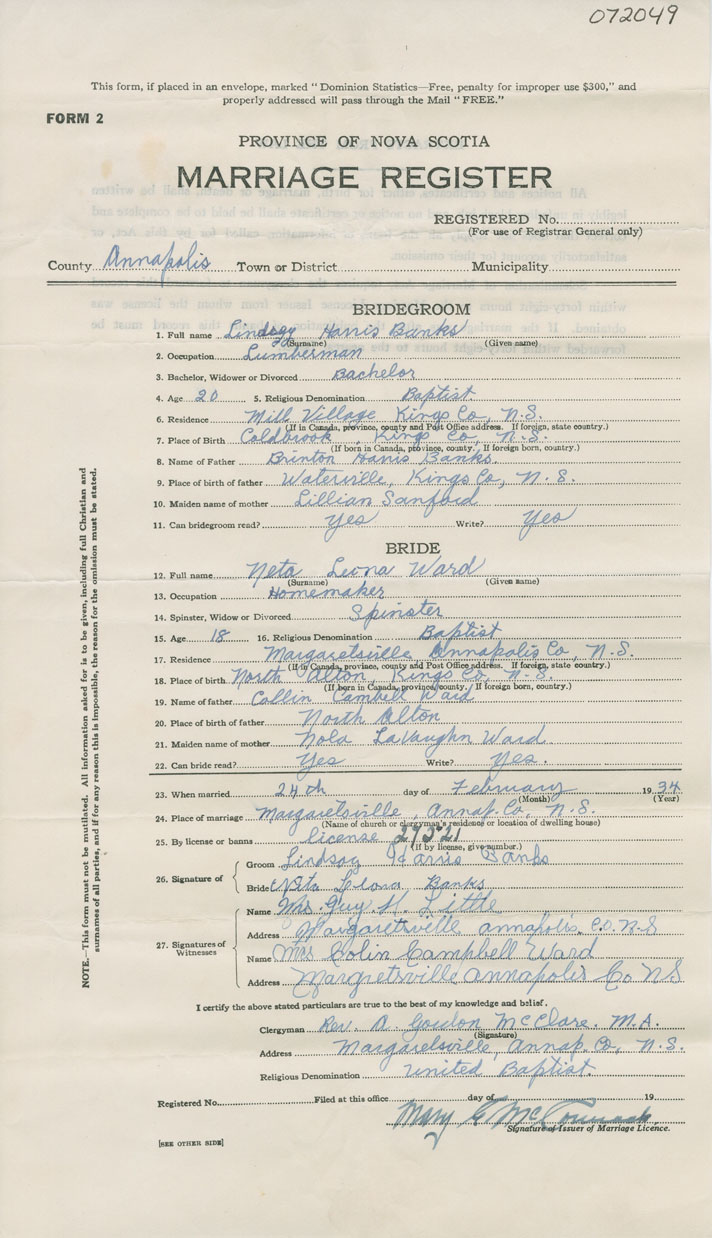 072049
This form, if placed in an envelope, marked "Dominion Statistics—Free, penalty for improper use $300," and
properly addressed will pass through the Mail "FREE."
FORM 2
PROVINCE OF NOVA SCOTIA
MARRIAGE REGISTER
REGISTERED No.
(For use of Registrar General only)
County Annapolis Town or District Municipality
BRIDEGROOM
1. Full name Lindsay Harris Banks
(Surname) (Given name)
2. Occupation Lumberman
3. Bachelor, Widower or Divorced Bachelor
4. Age 20 5. Religious Denomination Baptist
6. Residence Mill Village Kings Co, N.S.
(If in Canada, province, county and Post Office address. If foreign, state country.)
7. Place of Birth Coldbrook, Kings Co, N.S.
(If born in Canada, province, county. If foreign born, country.)
8. Name of Father Brinton Harris Banks
9. Place of birth of father Waterville, Kings Co, N.S.
10. Maiden name of mother Lillian Sanford
11. Can bridegroom read? Yes Write? Yes
BRIDE
12. Full name Neta Leona Ward
(Surname) (Given name)
13. Occupation Homemaker
14. Spinster, Widow or Divorced Spinster
15. Age 18 16. Religious Denomination Baptist
17. Residence Margaretsville Annapolis Co, N.S.
(If in Canada, province, county and Post Office address. If foreign, state country.)
18. Place of birth North Alton, Kings Co, N.S.
(If born in Canada, province/county. If foreign born, country.)
19. Name of father Collin Cambell Ward
20. Place of birth of father North Alton
21. Maiden name of mother Nola LaVaughn Ward
22. Can bride read? Yes Write? Yes.
23. When married 24th day of February 1934
(Month) (Year)
24. Place of marriage Margaretsville, Annap. Co, N.S.
(Name of church or clergyman's residence or location of dwelling house)
25. By license or banns license 27521
(If by license, give number.)
26. Signature of
Groom Lindsay Harris Banks
Bride Neta Leona Banks
27. Signatures of Witnesses
Name Mrs. Guy H. Little
Address Margaretsville annapolis, C.O. N.S
Name Mrs Colin Campbell Ward
Address Margretsville annapolis Co NS
I certify the above stated particulars are true to the best of my knowledge and belief.
Clergyman Rev. A Gordon McClare. M.A.
(Signature)
Address Margaretsville, Annap. Co, N.S.
Religious Denomination United Baptist.
Registered No. Filed at this office day of 19
Mary McCormack
Signature of Issuer of Marriage Licence.
[SEE OTHER SIDE]
NOTE.—This form must not be mutilated. All information asked for is to be given, including full Christian and
surnames of all parties, and if for any reason this is impossible, the reason for the omission must be stated.